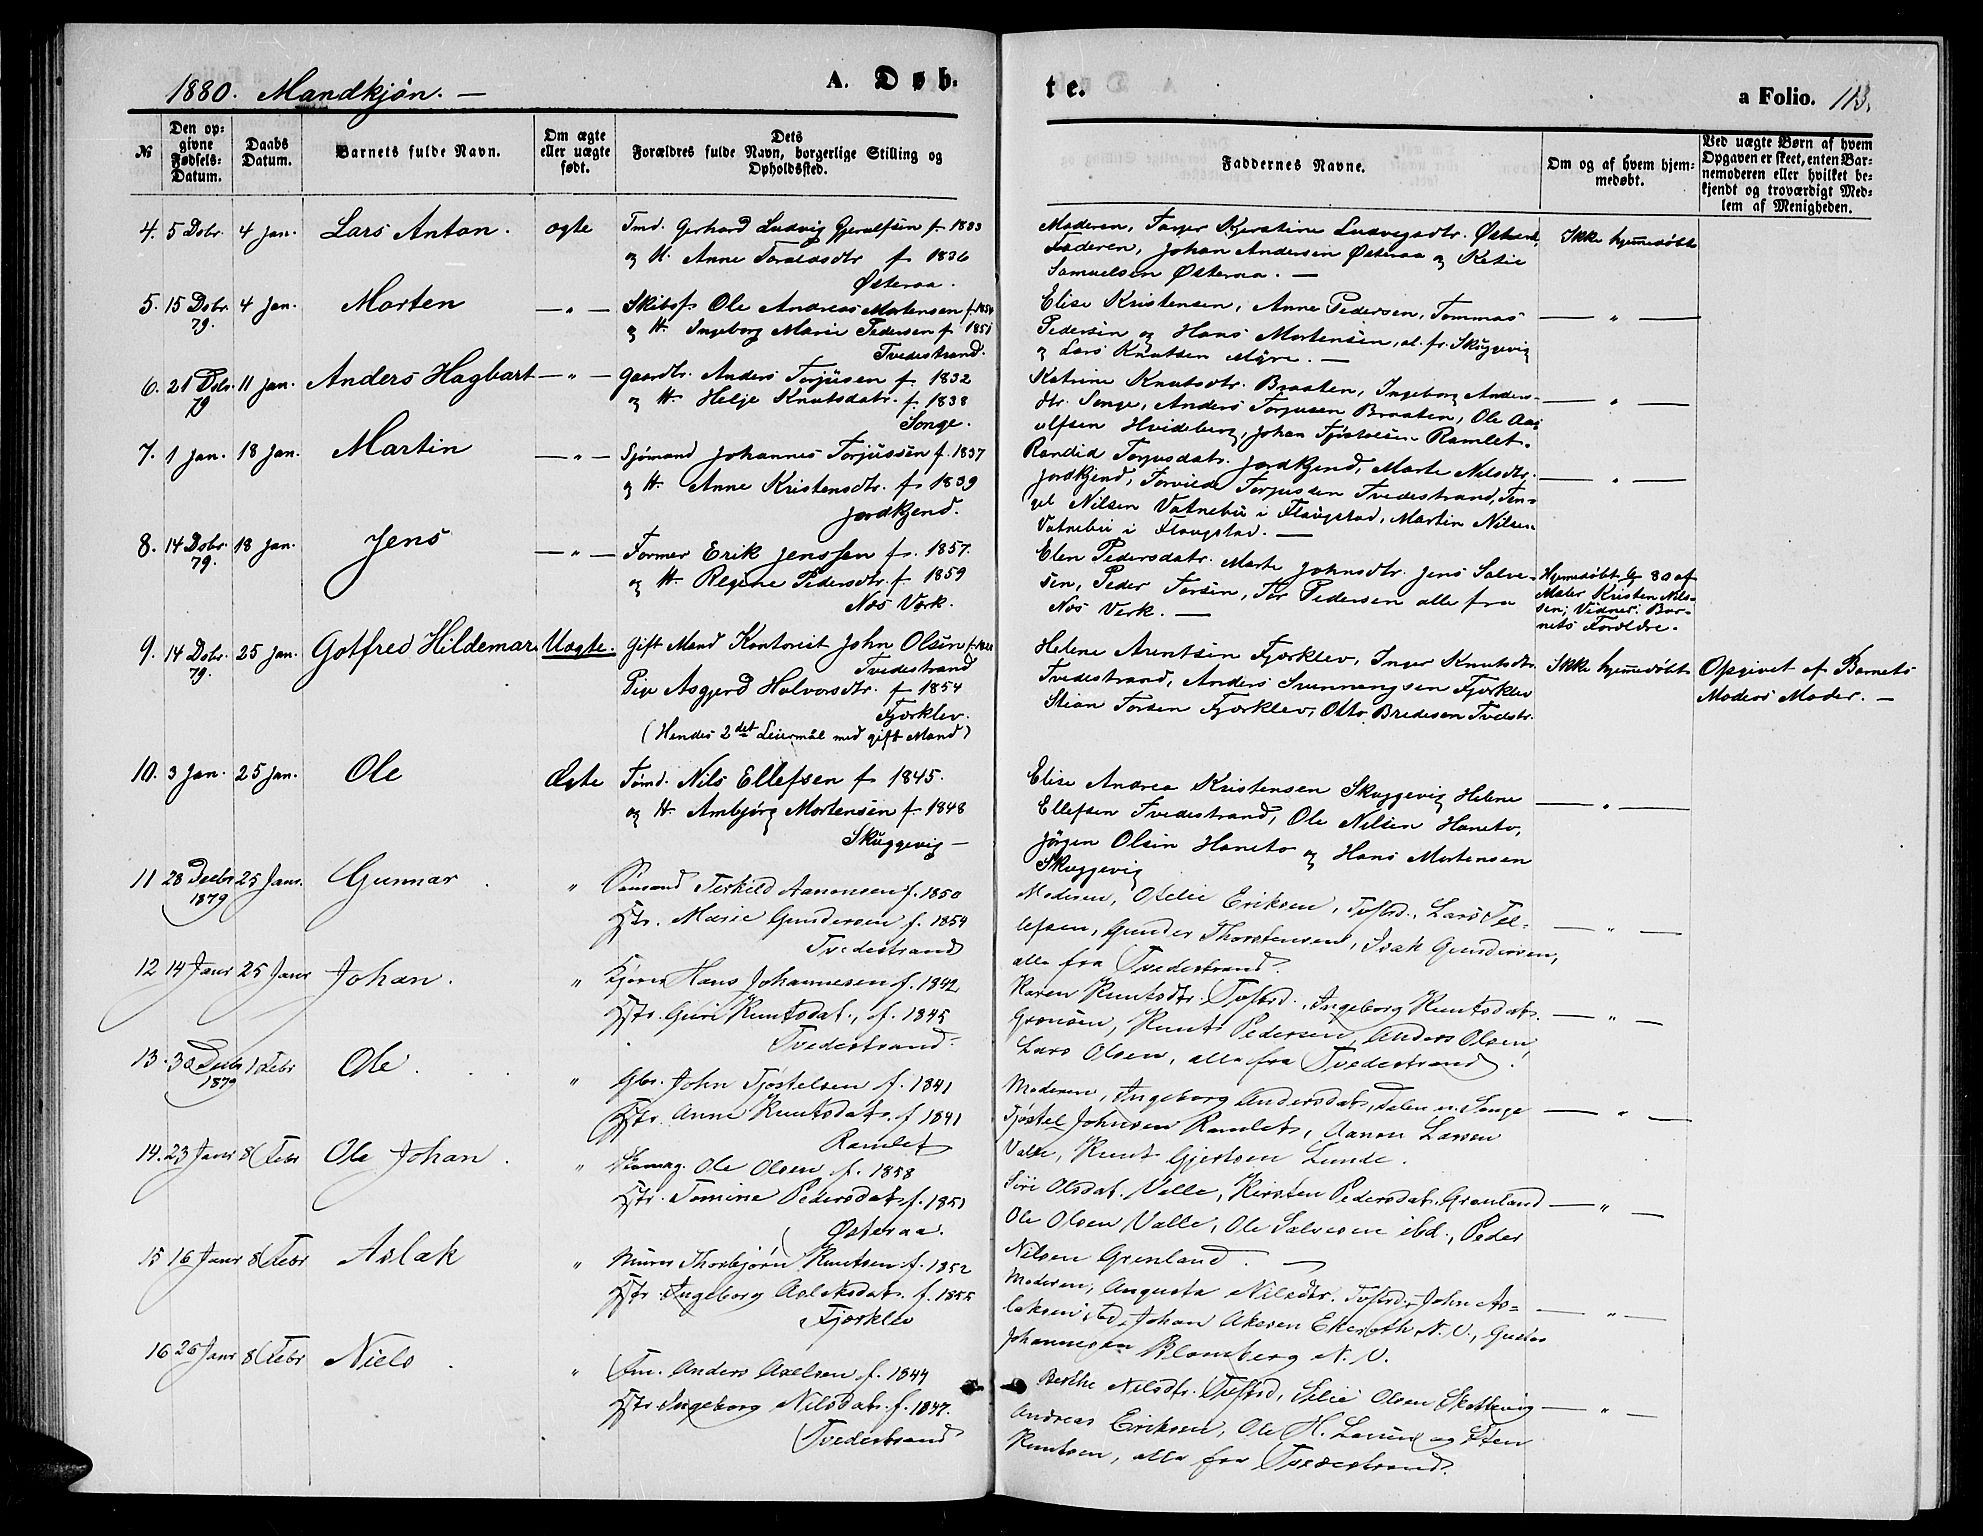 1880. Mandkjøn. — A. Døb-
te. a Folio. 113.
№ Den op-givne Fødsels-Datum. Daabs Datum. Barnets fulde Navn. Om ægte eller uægte født. Dets Forældres fulde Navn, borgerlige Stilling og Opholdssted.
Faddernes Navne. Om og af hvem hjem-medøbt. Ved uægte Børn af hvem Opgaven er skeet, enten Bar-nemoderen eller hvilket be-kjendt og troværdigt Med-lem af Menigheden.
4. 5 Dbr. 4 Jan. Lars Anton. ægte Tmd. Gerhard Ludvig Gjerulfsen f. 1833
og H. Anne Taraldsdtr f. 1836
Østeraa.
Moderen, Kjerstine Ludvigsdtr.
Faderen, Johan Andersen Østeraa og
Samuelsen Østeraa. —
Ikke hjemmedøbt
5. 15 Dbr. 79. 4 Jan. Morten — " — Skibsf. Ole Andreas Mortensen f.
og H. Ingeborg Marie Pedersen f. 1851
Tvedestrand.
Elise Kristensen, Anne Pedersen, Tommas
Pedersen og Hans Mortensen, al. fr. Skuggevig
og Lars Knutsen Myre. —
— " —
6. 21 Dbr. 79 11 Jan. Anders Hagbart — " — Gaardbr. Anders Torjusen f. 1832
og H. Helje Knutsdatr. f. 1838
Songe.
Katrine Knutsdtr. Braaten, Ingeborg Anders-
dtr. Songe, Anders Torjusen Braaten, Ole Aan-
ulfsen Hvideberg, Johan Tjøstolsen Ramlet.
— " —
7. 1 Jan. 18 Jan. Martin — " — Sjømand Johannes Torjussen f. 1837
og H. Anne Kristensdtr. f. 1839
Jordkjend.
Randid Torjusdatr. Jordkjend, Marte Nilsdtr.
Jordkjend, Torvild Torjussen Tvedestrand,
Nilsen Vatnebu i Flaugstad, Martin Nilsen
Vatnebu i Flaugstad. —
— " —
8. 14 Dbr. 79. 18 Jan. Jens — " — Former Erik Jenssen f. 1857.
og H. Regine Pedersdtr. f. 1859
Næs Værk.
Elen Pedersdatr. Marte Johnsdtr. Jens Salve-
sen, Peder Torsen, Tor Pedersen alle fra
Næs Verk. —
Hjemmedøbt 80 af
Maler Kristen Nils-
sen; Vidner: Bar-
nets Forældre.
9. 14 Dbr. 79. 25 Jan. Gotfred Hildemar. Uægte. Gift Mand Kontorist John Olsen
Tvedestrand
Pige Asgjerd Halvorsdtr. f. 1854
Fjærklev.
(Hendes 2det Leiermål med gift Mand)
Helene Arentsen Fjærklev, Inger Knutsdtr.
Tvedestrand, Anders Svenningsen Fjærklev
Stian Torsen Fjærklev, Otto Bredesen Tvedstr.
Ikke hjemmedøbt
Opgivet af Barnets
Moders Moder. —
10. 3 Jan. 25 Jan. Ole Ægte Tømd. Nils Ellefsen f. 1845.
og H. Anbjørg Mortensen f. 1848
Skuggevig —
Elise Andrea Kristensen Skuggevig Helene
Ellefsen Tvedestrand, Ole Nilsen Haneto,
Jørgen Olsen Haneto og Hans Mortensen
Skuggevig
— " —
11 28 Decbr 1879 25 Janr. Gunnar. " Sømand Terkild Aanonsen f. 1850
Hstr. Marie Gundersen f. 1854
Tvedestrand
Moderen, Ofelie Eriksen, Tvstrd., Lars Tel-
lefsen, Gunder Thorstensen, Isak Gundersen,
alle fra Tvedestrand.
— " —
12 14 Janr 25 Janr Johan. " Hans Johannesen f. 1842
Hstr. Guri Knutsdat., f. 1845
Tvedestrand.
Karen Knutsdtr. Tvstrd., Ingeborg Knutsdat.
Knut Pedersen, Anders Olsen,
Lars Olsen, alle fra Tvedestrand.
— " —
13. 30 Decbr 1879 1 Febr Ole. " Gbr. John Tjøstelsen f. 1841
Hstr. Anne Knutsdat. f. 1841
Ramlet
Moderen, Ingeborg Andersdat., Songe
Tjøstel Johnsen Ramlet, Aanon Larsen
Valle, Knut Gjertsen Lunde.
— " —
14. 23 Janr 8 Febr Ole Johan. " Skomag. Ole Olsen f. 1858
Hstr. Tomine Pedersdat. f. 1851
Østeraa.
Siri Olsdat. Valle, Kirsten Pedersdat. Grønland
Ole Olsen Valle, Ole Salvesen ibd., Peder
Nilsen Grønland. —
— " —
15 16 Janr 8 Febr Aslak " Murer Thorbjørn Knutsen f. 1852
Hstr. Ingeborg Aslaksdat. f. 1855
Fjærklev
Moderen, Augusta Nilsdtr. Tvstrd., John As-
laksen ibd, Johan Ekeroth N. V., Gustav
Johannesen Blomberg N. V.
— " —
16 26 Janr 8 Febr Niels. " Tm. Anders Axelsen f. 1844
Hstr Ingeborg Nilsdat. f. 1847.
Tvedestrand
Berthe Nilsdtr. Tvstrd, Olsen
Andreas Eriksen, Ole H. og Sten
Knutsen, alle fra Tvedestrand.
— " —